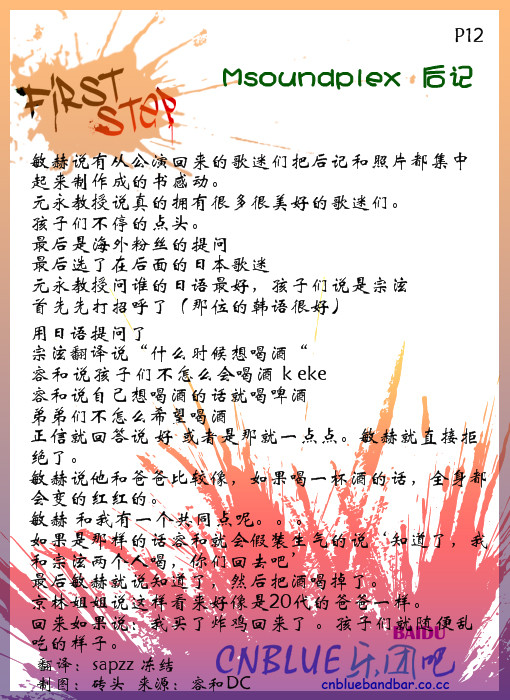 P12
Msoundplex 后记
FiRST
STEP
敏赫说有从公演回来的歌迷们把后记和照片都集中
起来制作成的书感动。
元永教授说真的拥有很多很美好的歌迷们。
孩子们不停的点头。
最后是海外粉丝的提问
最后选了在后面的日本歌迷
元永教授问谁的日语最好，孩子们说是宗泫
首先先打招呼了（那位的韩语很好）
用日语提问了
宗泫翻译说“什么时候想喝酒“
容和说孩子们不怎么会喝酒 k eke
容和说自己想喝酒的话就喝啤酒
弟弟们不怎么希望喝酒
正信就回答说 好 或者是那就一点点。敏赫就直接拒
绝了。
敏赫说他和爸爸比较像，如果喝一杯酒的话，全身都
会变的红红的。
敏赫 和我有一个共同点呢。。。
如果是那样的话容和就会假装生气的说‘知道了，我
和宗泫两个人喝，你们回去吧’
最后敏赫就说知道了，然后把酒喝掉了。
京林姐姐说这样看来好像是20代的爸爸一样。
回来如果说：我买了炸鸡回来了 。孩子们就随便乱
吃的样子。
翻译：sapzz 冻结
制图：砖头 来源：容和DC
BAIDU
CNBLUE乐团吧
cnbluebandbar.co.cc